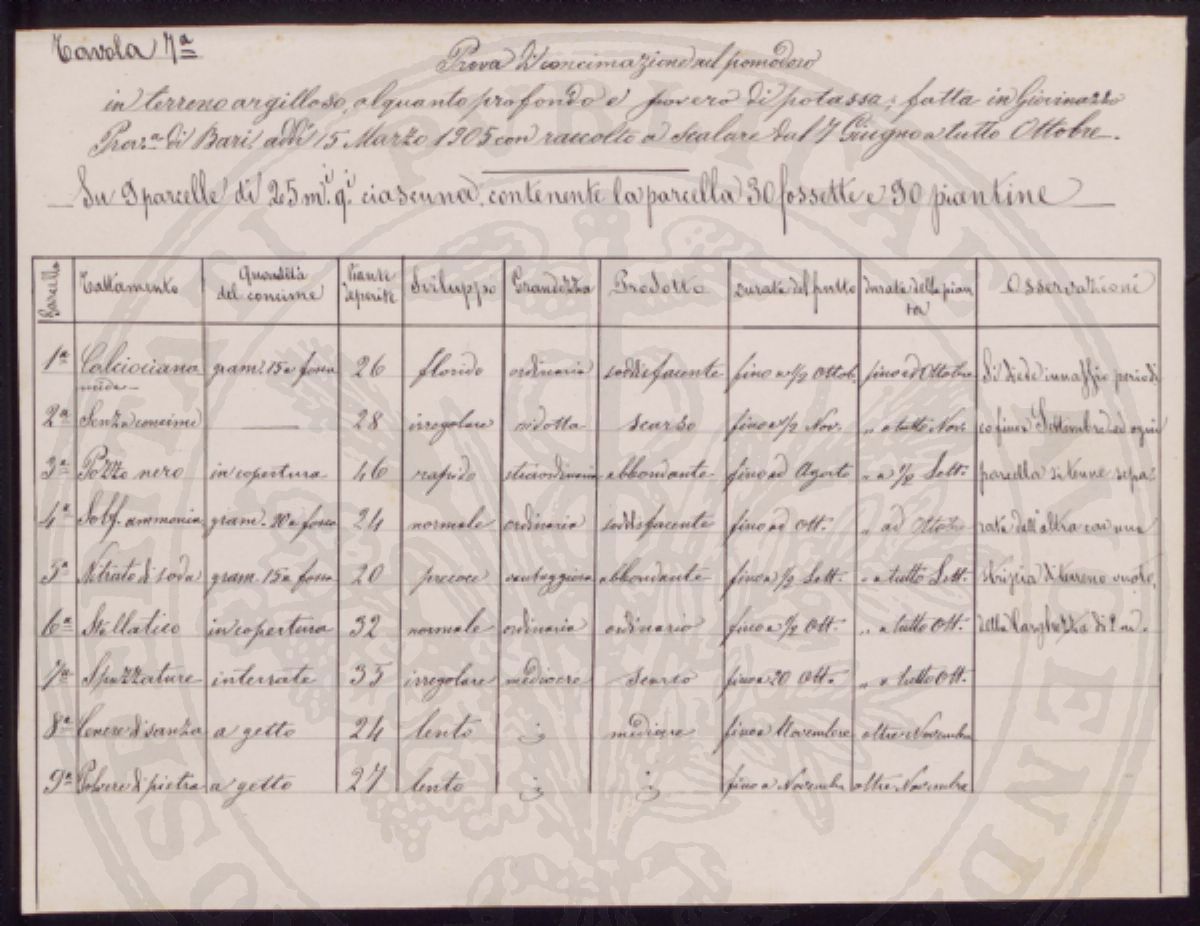 Tavola 7ª
Prova di concimazione nel pomodoro
in terreno argilloso, alquanto profondo e povero di potassa; fatta in Giovinazzo
Prov.ª di Bari addì 15 Marzo 1905 con raccolto a scalare dal 7 Giugno a tutto Ottobre.
Su 9 parcelle di 25 m.i q.i ciascuna, contenente la parcella 30 fossette e 90 piantine
Parcella Trattamento Quantità del concime Piante deperite Sviluppo Grandezza Prodotto Durata del frutto Durata della pianta Osservazioni
1ª Calciocianamide gram. 15 a fossa 26 florido ordinaria soddisfacente fino a ½ Ottob. fino ad Ottobre Si diede innaffio periodi
2ª Senza concime — 28 irregolare ridotta scarso fino a ½ Nov. „ a tutto Nov. co fino a Settembre ed ogni
3ª Pozzo nero in copertura 46 rapido straordinaria abbondante fino ad Agosto „ a ½ Sett. parcella si tenne sepa-
4ª Solf. ammonia gram. 20 a fossa 24 normale ordinaria soddisfacente fino ad Ott. „ ad Ottobre rata dall'altra con una
5ª Nitrato di soda gram. 15 a fossa 20 precoce vantaggiosa abbondante fino a ½ Sett. „ a tutto Sett. striscia di terreno vuoto,
6ª Stallatico in copertura 32 normale ordinaria ordinario fino a ½ Ott. „ a tutto Ott. della larghezza di 2 m.
7ª Spazzature interrate 35 irregolare mediocre scarso fino a 20 Ott. „ a tutto Ott.
8ª Cenere di sansa a getto 24 lento „ mediocre fino a Novembre oltre Novembre
9ª Polvere di pietra a getto 27 lento „ „ fino a Novembre oltre Novembre